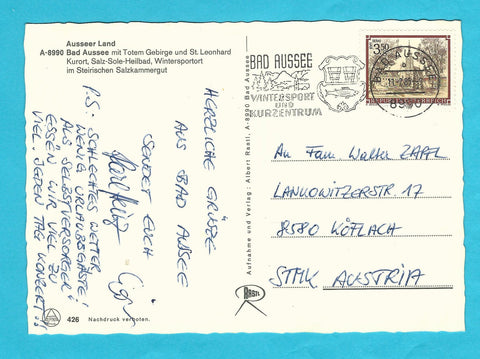 Ausseer Land
A-8990 Bad Aussee mit Totem Gebirge und St. Leonhard
Kurort, Salz-Sole-Heilbad, Wintersportort
im Steirischen Salzkammergut
HERZLICHE GRÜßE
AUS BAD AUSSEE
SENDET EUCH
P.S: SCHLECHTES WETTER,
WENIG URLAUBSGÄSTE!
ALS SELBSTVERSORGER
ESSEN WIR VIEL ZU
VIEL. JEDEN TAG KONZERT!!
426 Nachdruck verboten.
Aufnahme und Verlag: Albert Rastl, A-8990 Bad Aussee
RASTL
BAD AUSSEE
WINTERSPORT
UND
KURZENTRUM
3.50
BAD AUSSEE
8990
REPUBLIK ÖSTERREICH
An Fam. Walter ZAPFL
LANKOWITZERSTR. 17
8580 KÖFLACH
STMK AUSTRIA